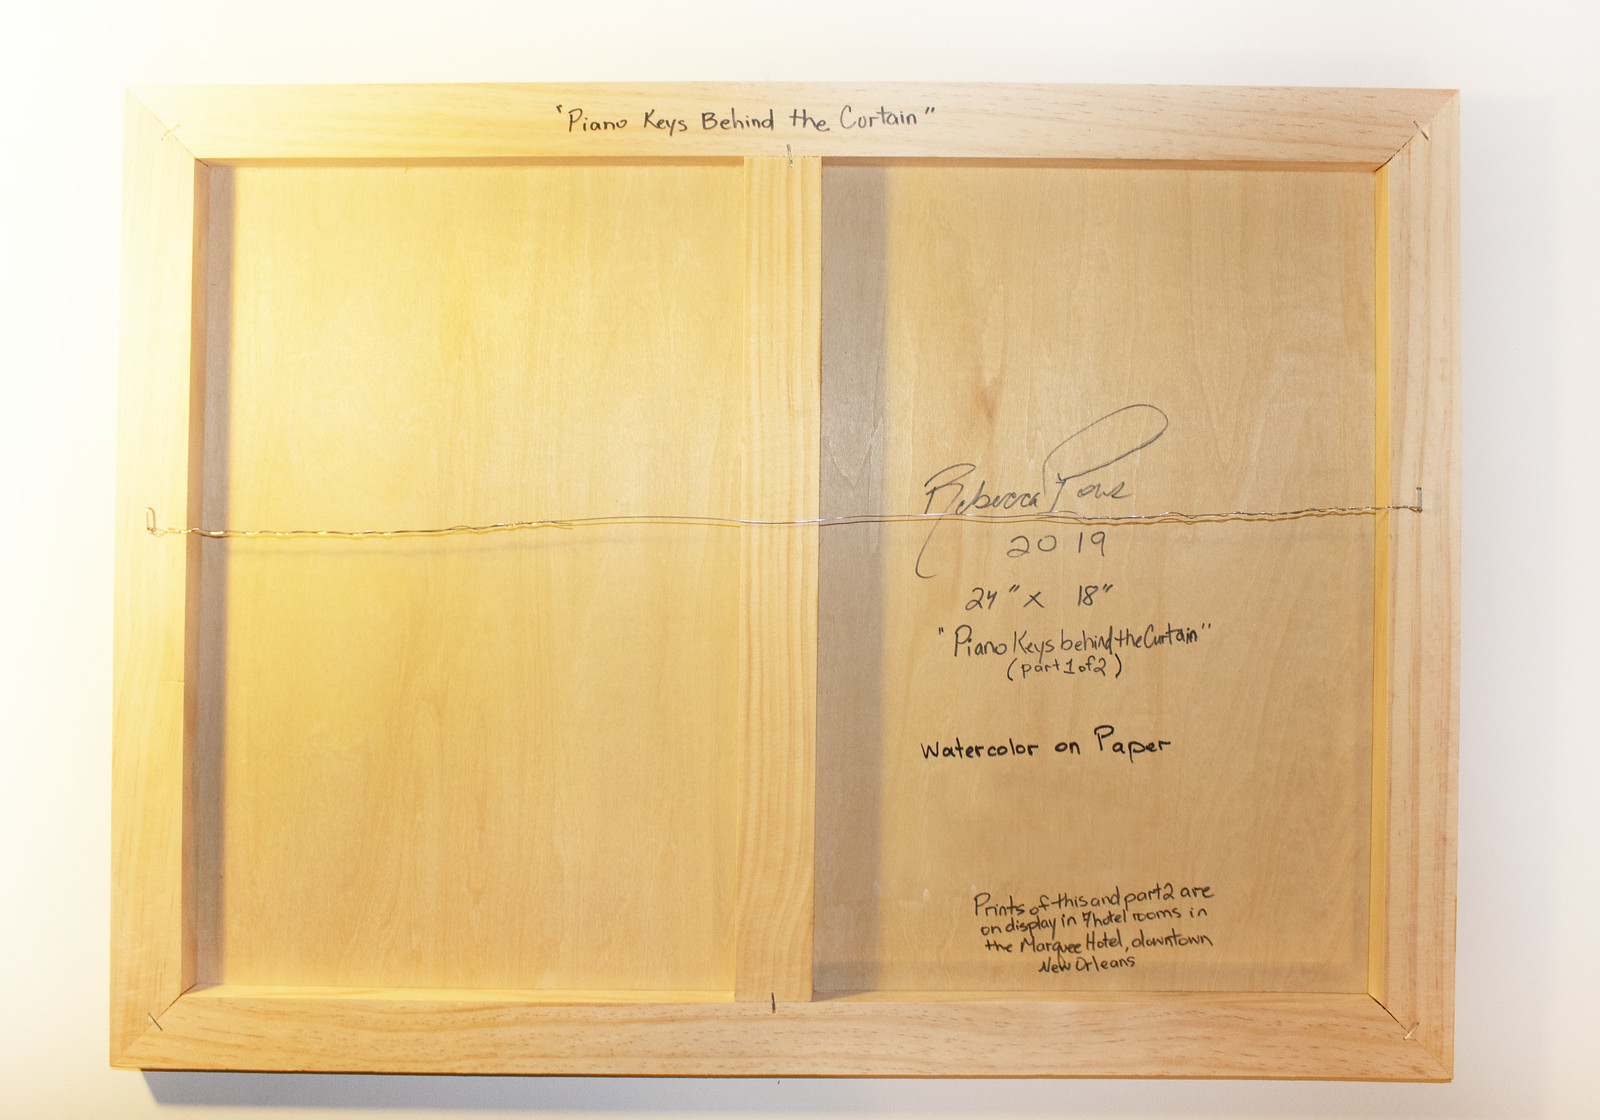 "Piano Keys Behind the Curtain"
Rebecca
2019
24" x 18"
"Piano Keys behind the Curtain"
(part 1 of 2)
Watercolor on Paper
Prints of this and part 2 are
on display in 7 hotel rooms in
the Marquee Hotel, downtown
New Orleans